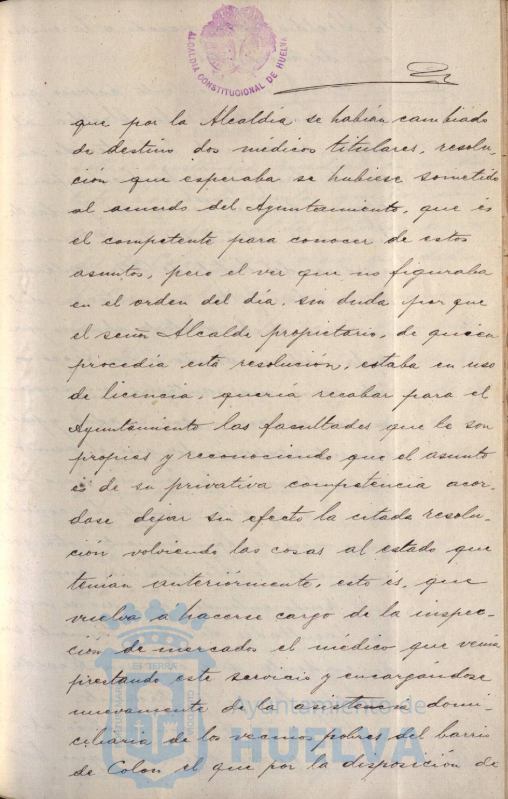 ALCALDIA CONSTITUCIONAL DE HUELVA
que por la Alcaldía se habían cambiado
de destino dos médicos titulares, resolu-
ción que esperaba se hubiese sometido
al acuerdo del Ayuntamiento, que es
el competente para conocer de estos
asuntos, pero el ver que no figuraba
en el orden del día, sin duda por que
el señor Alcalde propietario, de quien
procedía esta resolución, estaba en uso
de licencia, quería recabar para el
Ayuntamiento las facultades que le son
propias y reconociendo que el asunto
es de su privativa competencia acor-
dase dejar sin efecto la citada resolu-
ción volviendo las cosas al estado que
tenían anteriormente, esto es, que
vuelva a hacerse cargo de la inspec-
ción de mercados el médico que venía
prestando este servicio y encargándose
nuevamente de la asistencia domi-
ciliaria de los vecinos pobres del barrio
de Colón el que por la disposición de
Ayuntamiento de
HUELVA